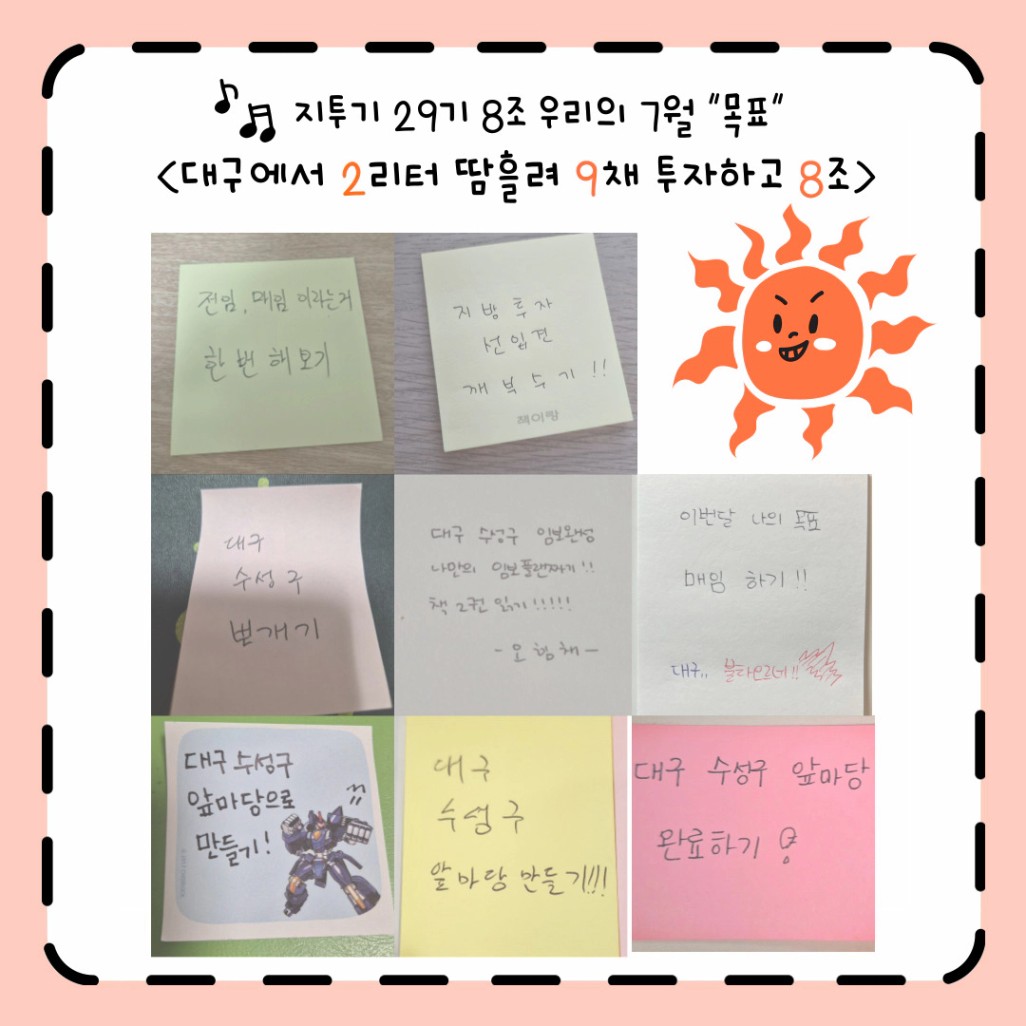 지투기 29기 8조 우리의 7월 "목표"
<대구에서 2리터 땀흘려 9채 투자하고 8조>
전임, 매임 이라는거
한 번 해 보기
지방 투자
선입견
깨 부 수 기 !!
헤이팡
대구
수성 구
뽀개기
대구 수성구 임보완성
나만의 임보플랜짜기!!
책 2권 읽기!!!!!
이번달 나의 목표
매임 하기!!
대구.. 불타오르네!!
대구 수성구
앞마당으로
만들기!
대구
수성구
앞마당 만들기!!!
대구 수성구 앞마당
완료하기